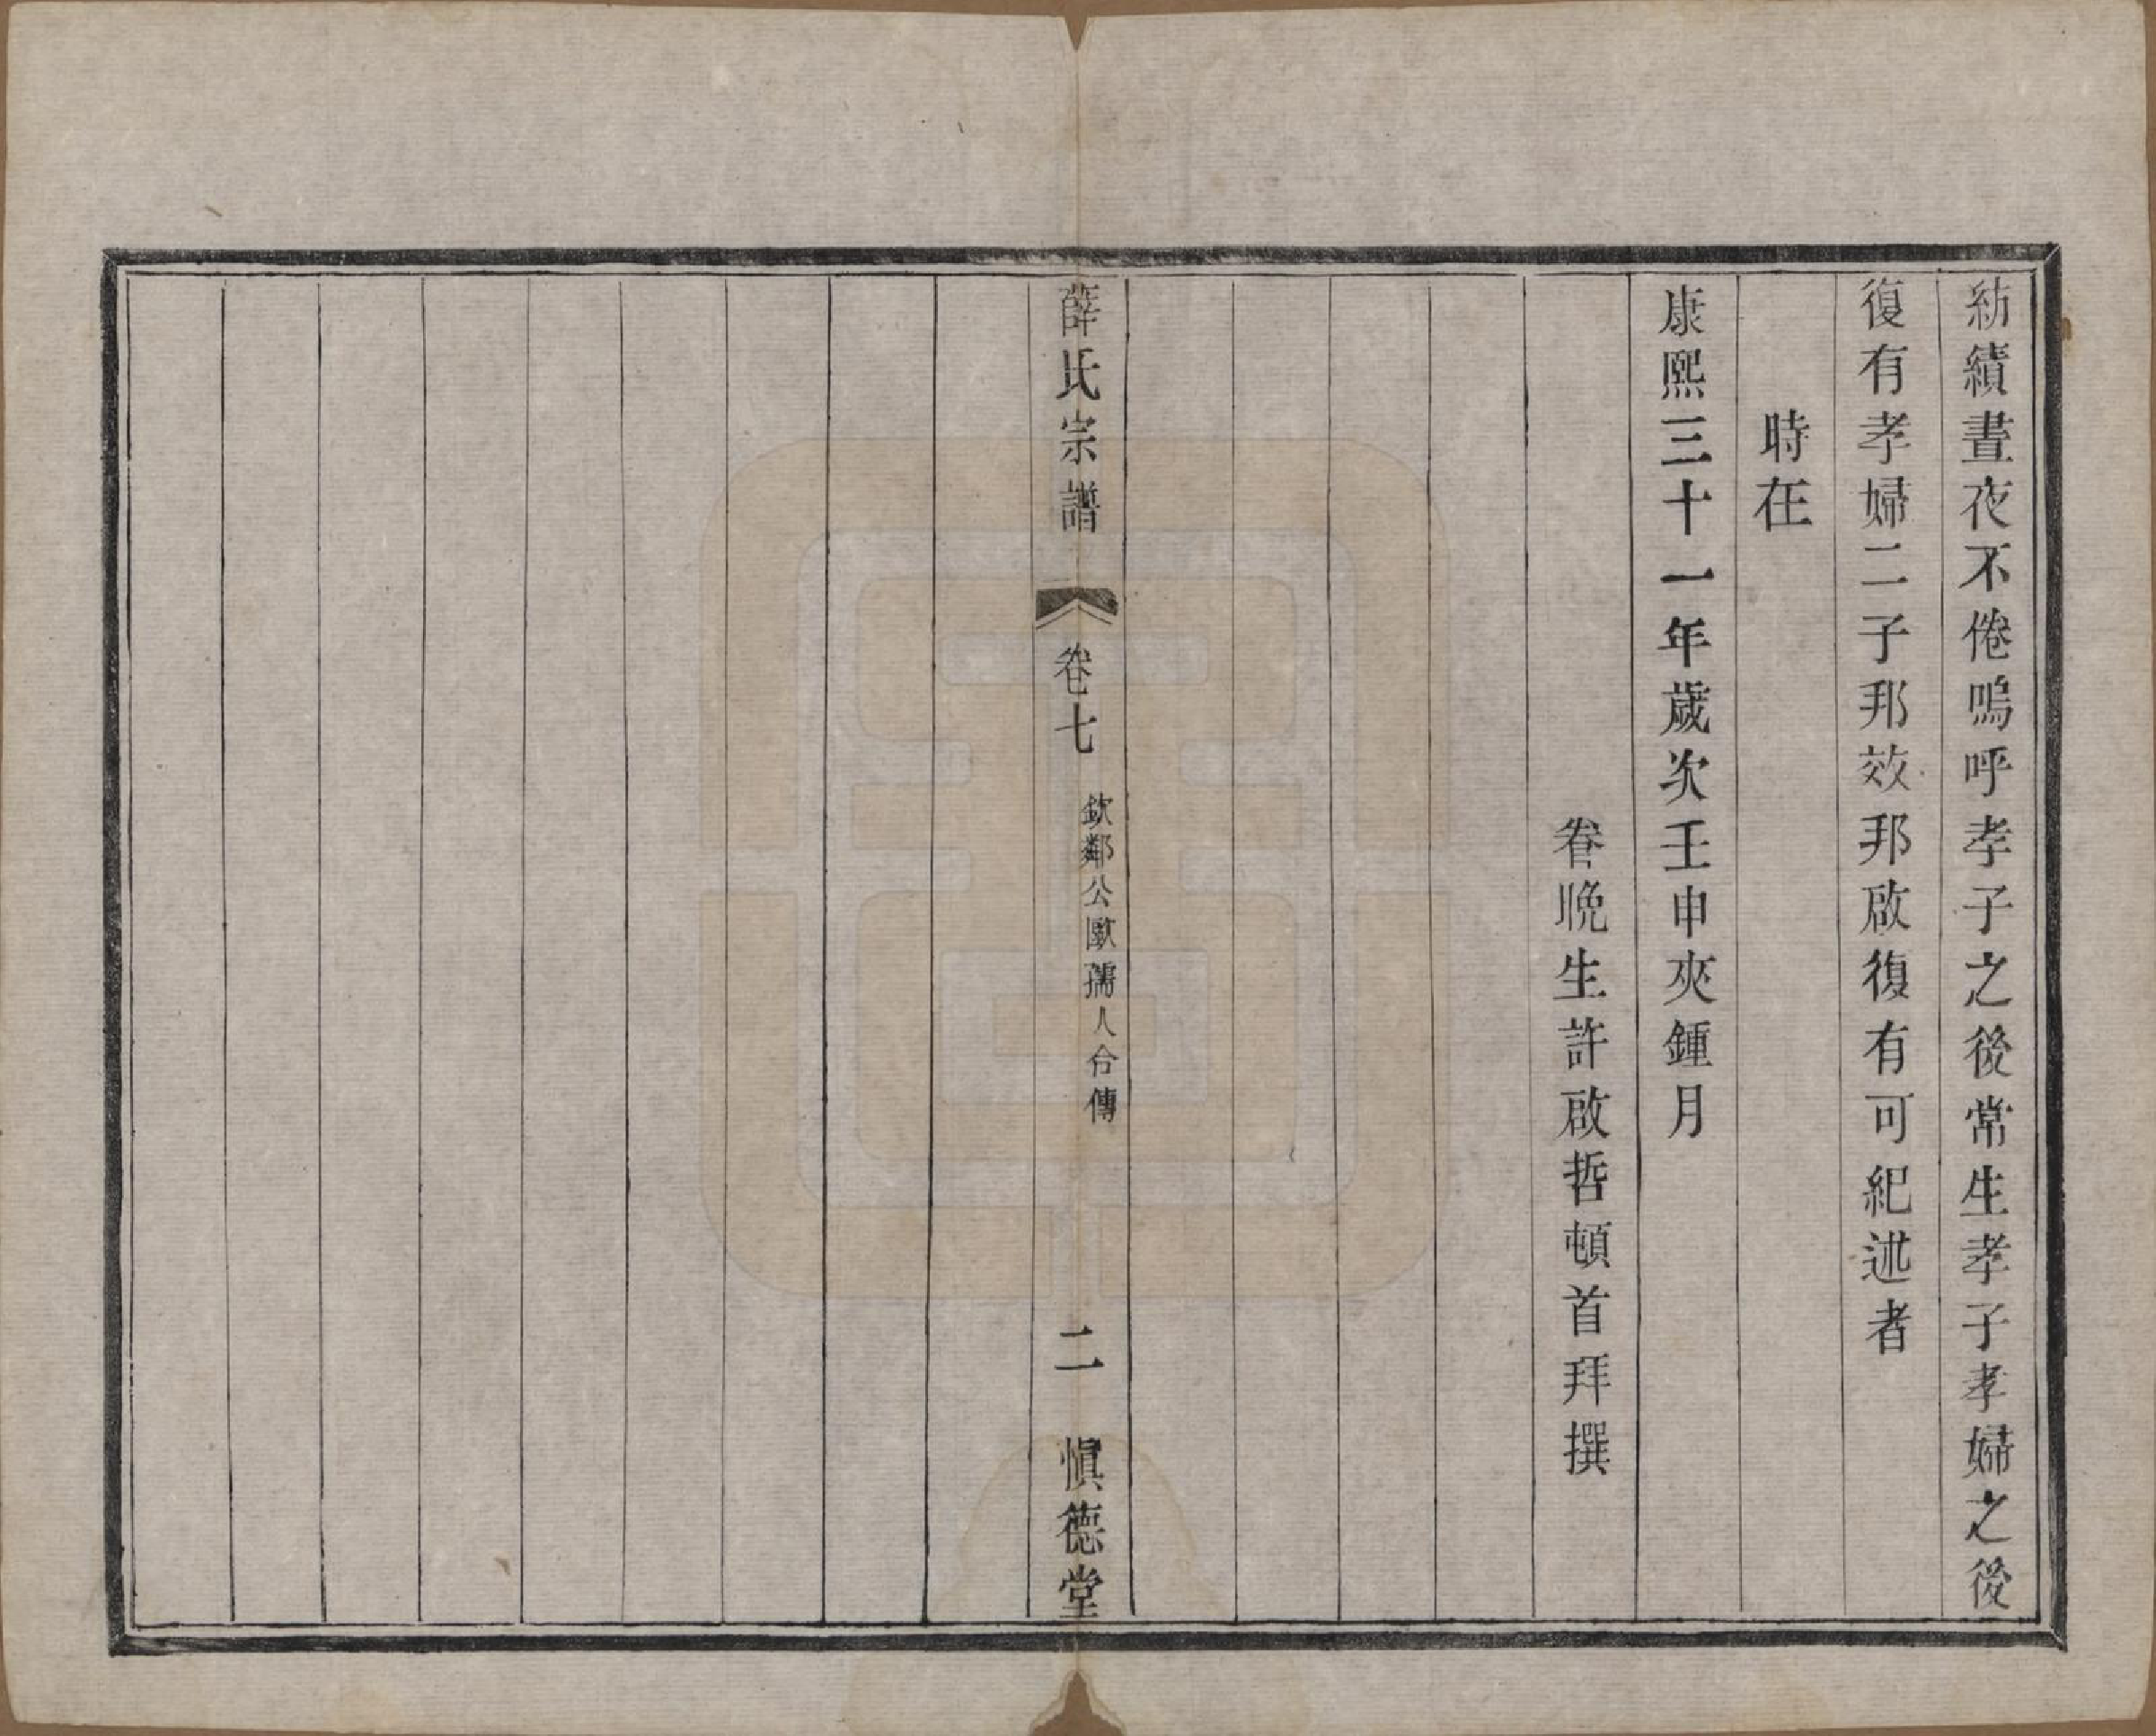 紡績晝夜不倦嗚呼孝子之後常生孝子孝婦之後
復有孝婦二子邦效邦啟復有可紀述者
時在
康熙三十一年歲次壬申夾鍾月
眷晚生許啟哲頓首拜撰
薛氏宗譜
卷七
欽鄰公歐孺人合傳
二
愼德堂